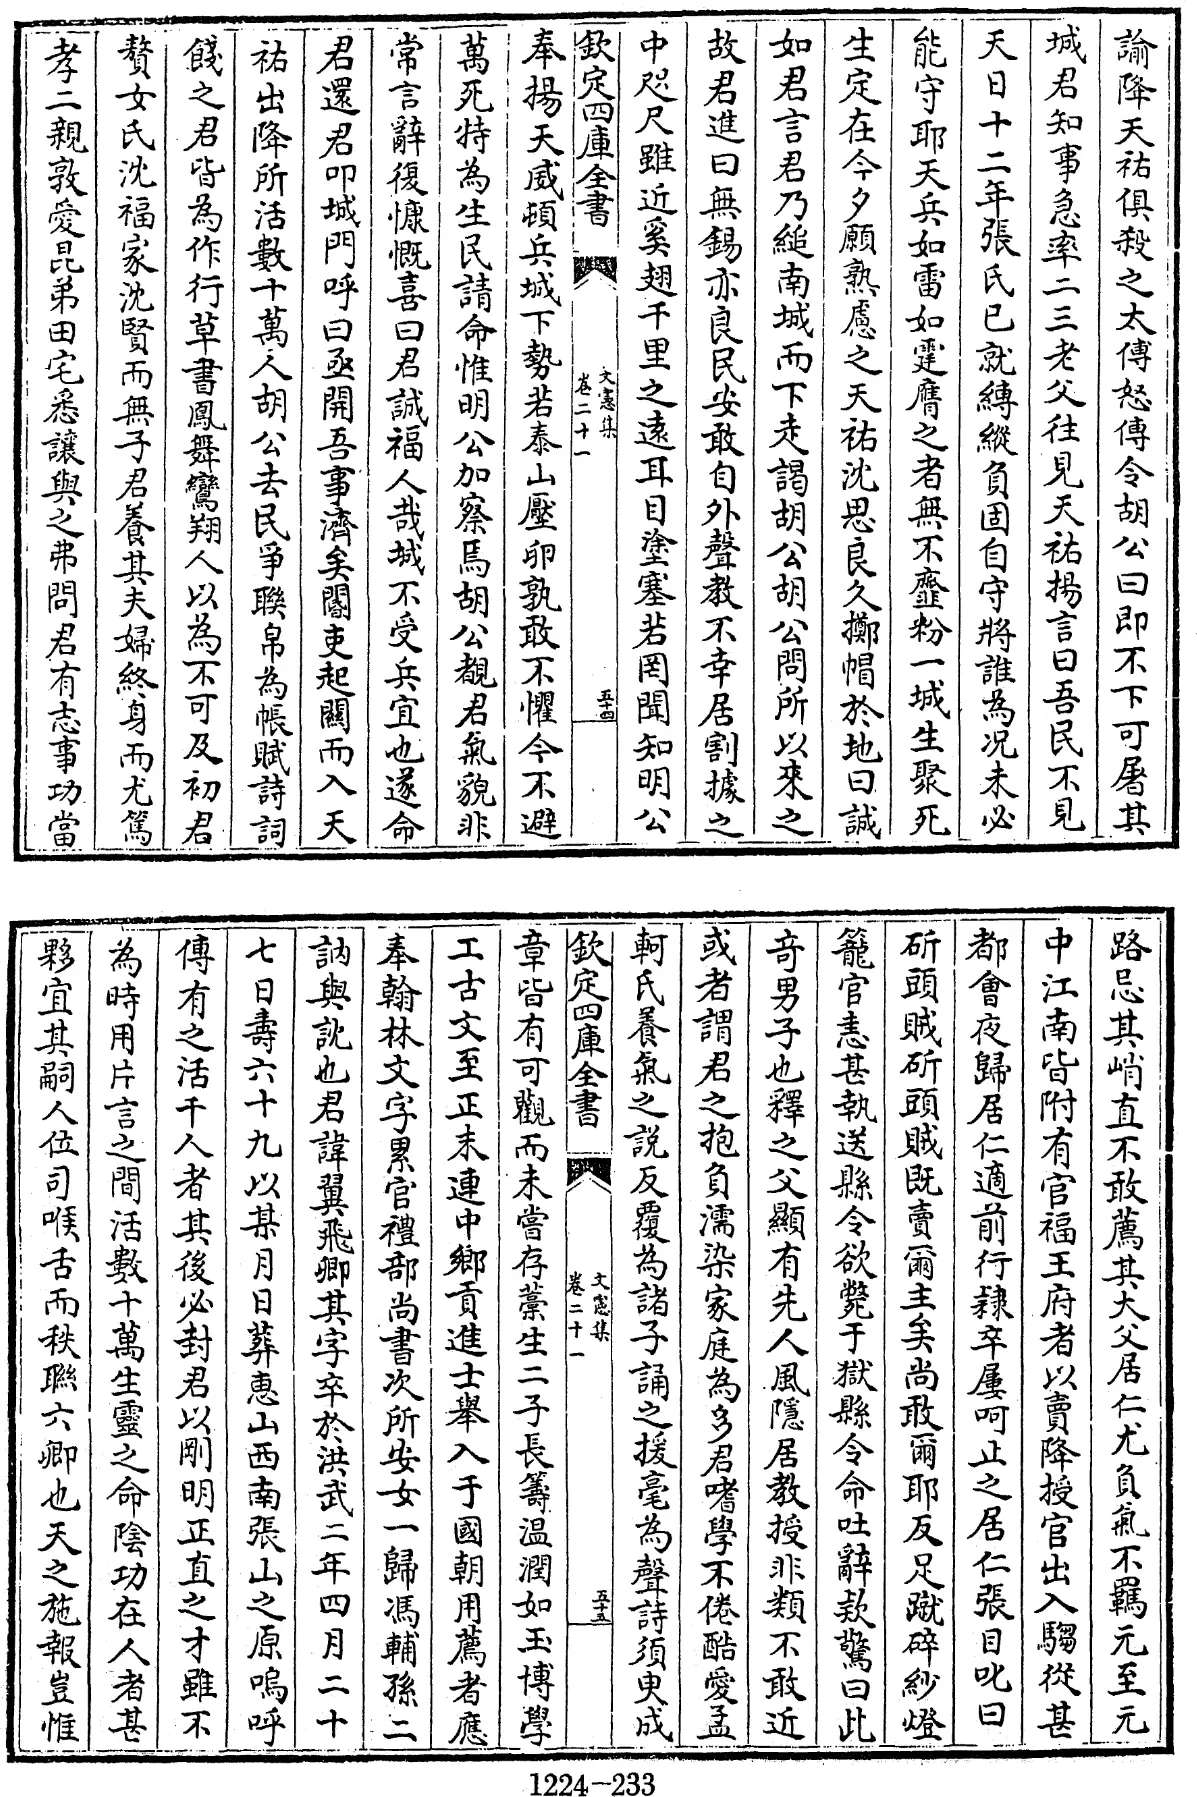 諭降天祐俱殺之太傅怒傳令胡公曰即不下可屠其
城君知事急率二三老父往見天祐揚言曰吾民不見
天日十二年張氏已就縛縱負固自守將誰為况未必
能守耶天兵如雷如霆膺之者無不虀粉一城生聚死
生定在今夕願熟慮之天祐沈思良久擲帽於地曰誠
如君言君乃縋南城而下走謁胡公胡公問所以來之
故君進曰無錫亦良民安敢自外聲教不幸居割據之
中咫尺雖近奚翅千里之遠耳目塗塞若罔聞知明公
欽定四庫全書
文憲集
卷二十一
五十四
奉揚天威頓兵城下勢若泰山壓卵孰敢不懼今不避
萬死特為生民請命惟明公加察焉胡公覩君氣貌非
常言辭復慷慨喜曰君誠福人哉城不受兵宜也遂命
君還君叩城門呼曰亟開吾事濟矣閽吏起關而入天
祐出降所活數十萬人胡公去民爭聯帛為帳賦詩詞
餞之君皆為作行草書鳳舞鸞翔人以為不可及初君
贅女氏沈福家沈賢而無子君養其夫婦終身而尤篤
孝二親敦愛昆弟田宅悉讓與之弗問君有志事功當
路忌其峭直不敢薦其大父居仁尤負氣不羈元至元
中江南皆附有官福王府者以賣降授官出入騶從甚
都會夜歸居仁適前行隸卒屢呵止之居仁張目叱曰
斫頭賊斫頭賊既賣爾主矣尚敢爾耶反足蹴碎紗燈
籠官恚甚執送縣令欲斃于獄縣令命吐辭欵驚曰此
奇男子也釋之父顯有先人風隱居教授非類不敢近
或者謂君之抱負濡染家庭為多君嗜學不倦酷愛孟
軻氏養氣之説反覆為諸子誦之援毫為聲詩須臾成
欽定四庫全書
文憲集
卷二十一
五十五
章皆有可觀而未嘗存藁生二子長籌温潤如玉博學
工古文至正末連中鄉貢進士舉入于國朝用薦者應
奉翰林文字累官禮部尚書次所安女一歸馮輔孫二
訥與訦也君諱翼飛卿其字卒於洪武二年四月二十
七日壽六十九以某月日葬惠山西南張山之原嗚呼
傳有之活千人者其後必封君以剛明正直之才雖不
為時用片言之間活數十萬生靈之命陰功在人者甚
夥宜其嗣人位司喉舌而秩聮六卿也天之施報豈惟
1224-233